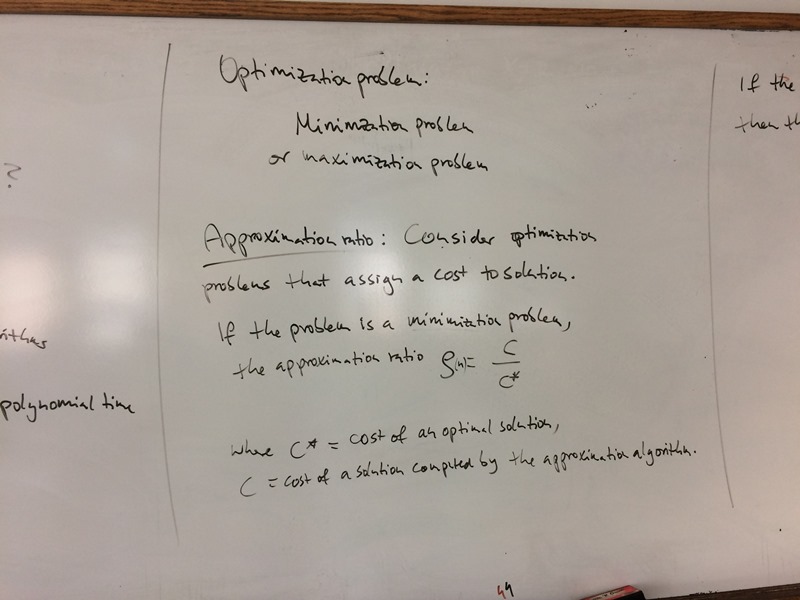 Optimization problem:
Minimization problem
or maximization problem
Approximation ratio: Consider optimization
problems that assign a cost to solution.
If the problem is a minimization problem,
the approximation ratio ρ(n) = C / C*
where C* = cost of an optimal solution,
C = cost of a solution computed by the approximation algorithm.
?
ithms
polynomial time
If the
then th
44